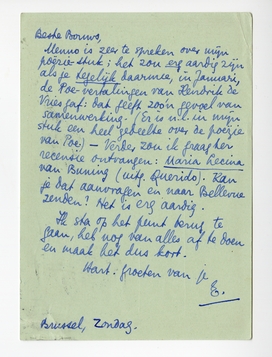 Beste Bouws,
Menno is zeer te spreken over mijn
poëzie-stuk; het zou erg aardig zijn
als je tegelijk daarmee, in Januari,
de Poe-vertalingen van Hendrik de
Vries gaf: dat geeft zoo'n gevoel van
samenwerking. (Er is n.l. in mijn
stuk een heel gedeelte over de poëzie
van Poe) — Verder zou ik graag her
recensie ontvangen: Maria Lecina
van Buning (uitg. Querido). Kan
je dat aanvragen en naar Bellevue
zenden? Het is erg aardig.
Ik sta op het punt terug te
gaan, heb nog van alles af te doen
en maak het dus kort.
Hart. groeten van je
E.
Brussel, Zondag.